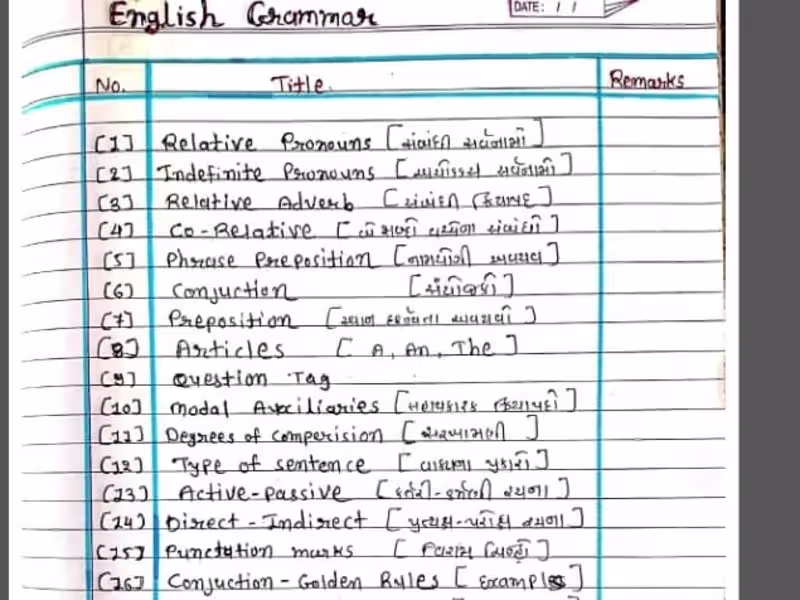 English Grammar
DATE: / /
No. Title Remarks
[1] Relative Pronouns [સંબંધી સર્વનામો]
[2] Indefinite Pronouns [અચોક્કસ સર્વનામો]
[3] Relative Adverb [સંબંધી ક્રિયાપદ]
[4] Co-Relative [બે શબ્દો વચ્ચેના સંબંધો]
[5] Phrase Preposition [નામયોગી અવયવ]
[6] Conjuction [સંયોજકો]
[7] Preposition [સ્થાન દર્શાવતા અવયવો]
[8] Articles [A, An, The]
[9] Question Tag
[10] Modal Auxiliaries [સહાયકારક ક્રિયાપદો]
[11] Degrees of comperision [સરખામણી]
[12] Type of sentence [વાક્યના પ્રકારો]
[13] Active-passive [કર્તરી-કર્મણી રચના]
[14] Direct-Indirect [પ્રત્યક્ષ-પરોક્ષ રચના]
[15] Punctution marks [વિરામ ચિહ્નો]
[16] Conjuction-Golden Rules [Examples]